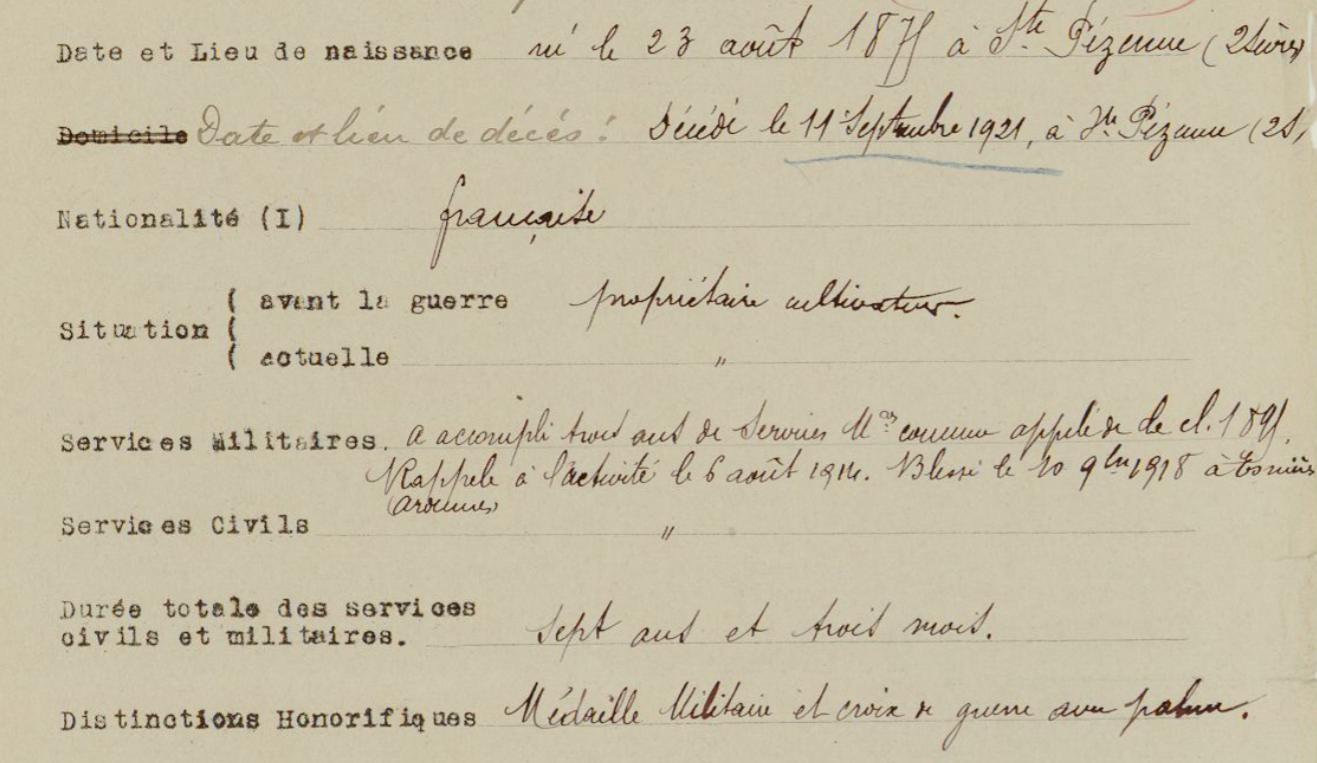 Date et Lieu de naissance né le 23 août 1875 à Ste Pézenne (2 Sèvres
Domicile Date et lieu de décès : Décédé le 11 Septembre 1921, à Ste Pézenne (2S,
Nationalité (I) française
Situation ( avant la guerre propriétaire cultivateur.
( actuelle "
Services Militaires. a accompli trois ans de Services Mres comme appelé de la cl. 1895.
Rappelé à l'activité le 6 août 1914. Blessé le 10 9bre 1918 à
(Ardennes)
Services Civils "
Durée totale des services
civils et militaires. Sept ans et trois mois.
Distinctions Honorifiques Médaille Militaire et croix de guerre avec palme.